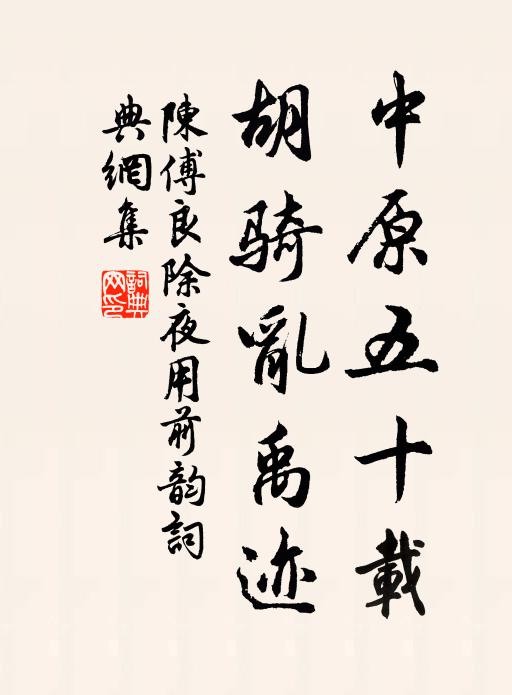 中原五十載
胡騎亂禹迹
陳傅良除夜用前韵詞
典網集
詞典網印